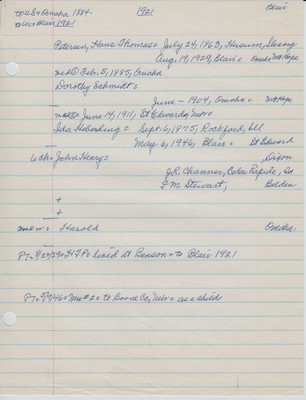 1921 Blair
to US + Omaha 1884-
to WCo+Blair 1921
Petersen, Hans Thomas = July 24, 1863, Husum, Slesvig
Aug. 19, 1929, Blair = Omaha Mt Hope
md ① Feb. 5, 1885, Omaha
Dorothy Schmidt =
June - 1904, Omaha = Mt Hope
md ② June 14, 1911, St Edwards, Nebr
Ida = Sept 6, 1875, Rockford, Ill
May 6, 1946, Blair = St Edward
6 ch = John Henry = Dixon
J.R. Channer, Cedar Rapids, Ia
F.M. Stewart, Belden
+
+
mem = Harold Omaha,
PT = 8/22/29 = lived at Benson = to Blair 1921
PT = 5/9/46 = Mrs #2 = to Boone Co, Nebr = as a child